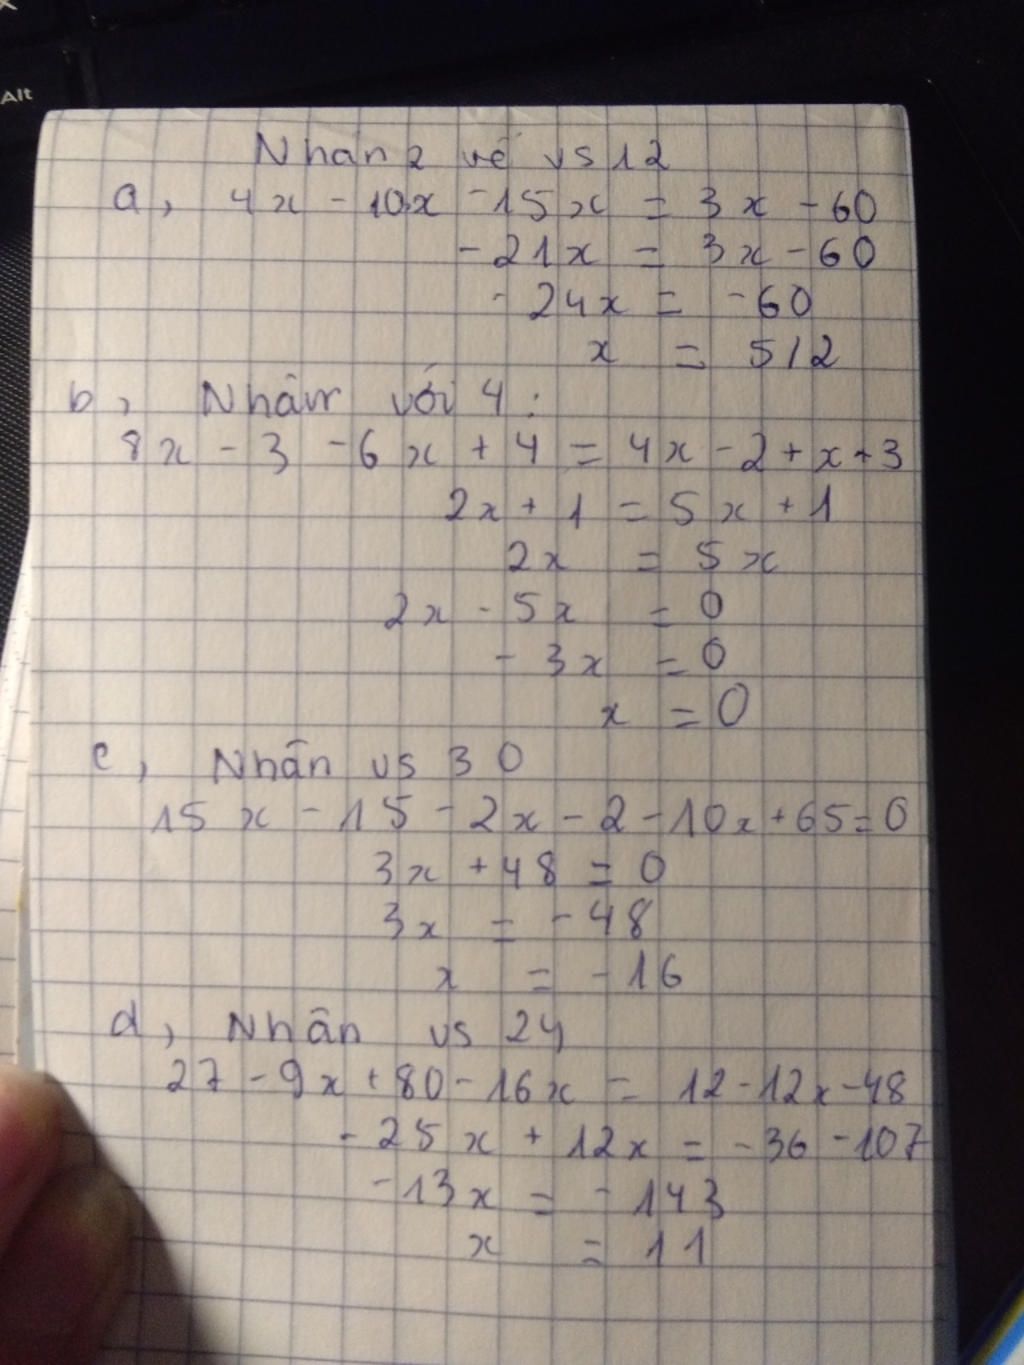 Alt
Nhân 2 vế vs 12
a, 4x - 10x - 15x = 3x - 60
- 21x = 3x - 60
- 24x = - 60
x = 5/2
b, Nhân với 4 :
8x - 3 - 6x + 4 = 4x - 2 + x + 3
2x + 1 = 5x + 1
2x = 5x
2x - 5x = 0
- 3x = 0
x = 0
c, Nhân vs 30
15x - 15 - 2x - 2 - 10x + 65 = 0
3x + 48 = 0
3x = - 48
x = - 16
d, Nhân vs 24
27 - 9x + 80 - 16x = 12 - 12x - 48
- 25x + 12x = - 36 - 107
- 13x = - 143
x = 11